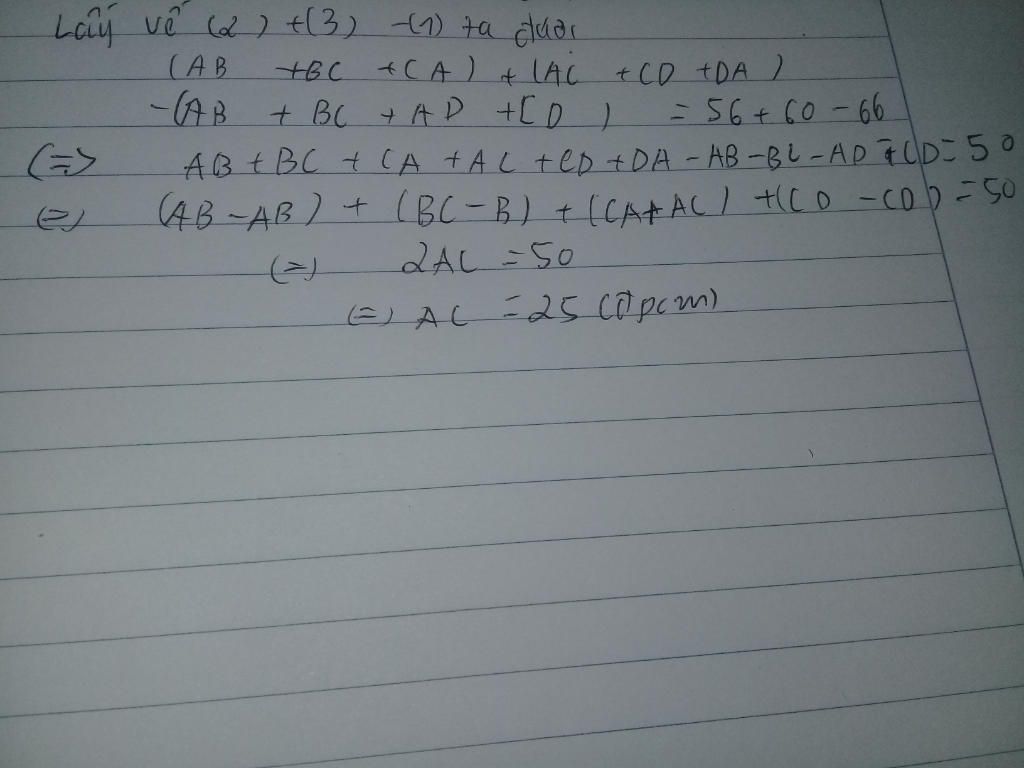 Lấy vế (2) +(3) -(1) ta được
(AB +BC +CA) + (AC +CD +DA)
-(AB + BC + AD +CD) = 56 + 60 - 66
(=> AB + BC + CA + AC + CD + DA - AB - BC - AD - CD = 50
(=) (AB - AB) + (BC - B) + (CA + AC) + (CD - CD) = 50
(=) 2AC = 50
(=) AC = 25 (đpcm)